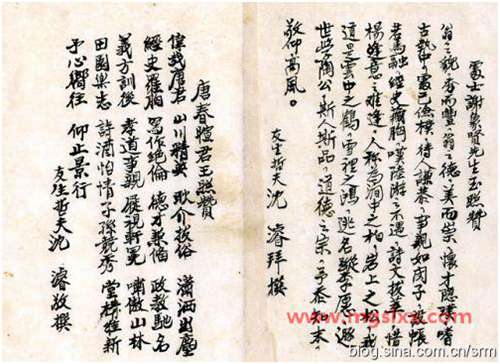 處士謝象賢先生玉照贊
翁之貌秀而豐翁之德美而崇懷才隱嗜
古執中處己儉樸待人謙恭事親如閔子悵
若馬融經史癖胸嘆陸游之不遇詩文拔萃惜
楊意之難逢人稱為澗中之柏岩上之松我
道是雲中之鶴雲裡之鴻逃名縱李原避
世從陶公斯人斯品道德之宗予忝末
敬仰高風。
友生哲夫沈濬拜撰
唐春榿君玉照贊
偉哉唐君 山川精英 耿介拔俗 瀟洒出塵
經史羅胸 寫作絕倫 德才兼備 政教馳名
義方訓後 孝道事親 展視軒冕 嘯傲山林
田園樂志 詩酒怡情 子孫競秀 堂構維新
予心嚮往 仰止景行
友生哲夫沈濬敬撰
www.mgslxw.com
blog.sina.com.cn/srm